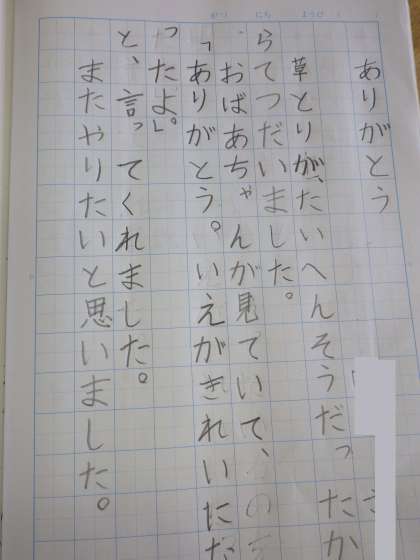 がつ にち ようび
ありがとう
草とりが、たいへんそうだったか
らてつだいました。
おばあちゃんが見ていて、
「ありがとう。いえがきれいに
ったよ。」
と、言ってくれました。
またやりたいと思いました。